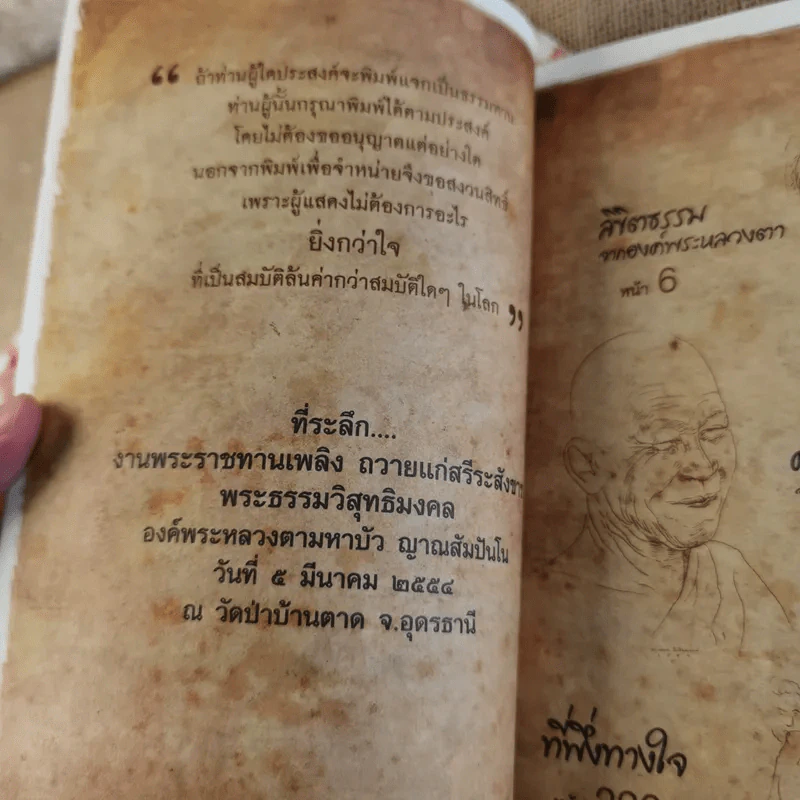 “ ถ้าท่านผู้ใดประสงค์จะพิมพ์แจกเป็นธรรมทาน
ท่านผู้นั้นกรุณาพิมพ์ได้ตามประสงค์
โดยไม่ต้องขออนุญาตแต่อย่างใด
นอกจากพิมพ์เพื่อจำหน่ายจึงขอสงวนสิทธิ์
เพราะผู้แสดงไม่ต้องการอะไร
ยิ่งกว่าใจ
ที่เป็นสมบัติล้นค่ากว่าสมบัติใดๆ ในโลก ”
ที่ระลึก....
งานพระราชทานเพลิง ถวายแก่สรีระสังขาร
พระธรรมวิสุทธิมงคล
องค์พระหลวงตามหาบัว ญาณสัมปันโน
วันที่ ๕ มีนาคม ๒๕๕๔
ณ วัดป่าบ้านตาด จ.อุดรธานี
ลิขิตธรรม
จากองค์พระหลวงตา
หน้า 6
ที่พึ่งทางใจ